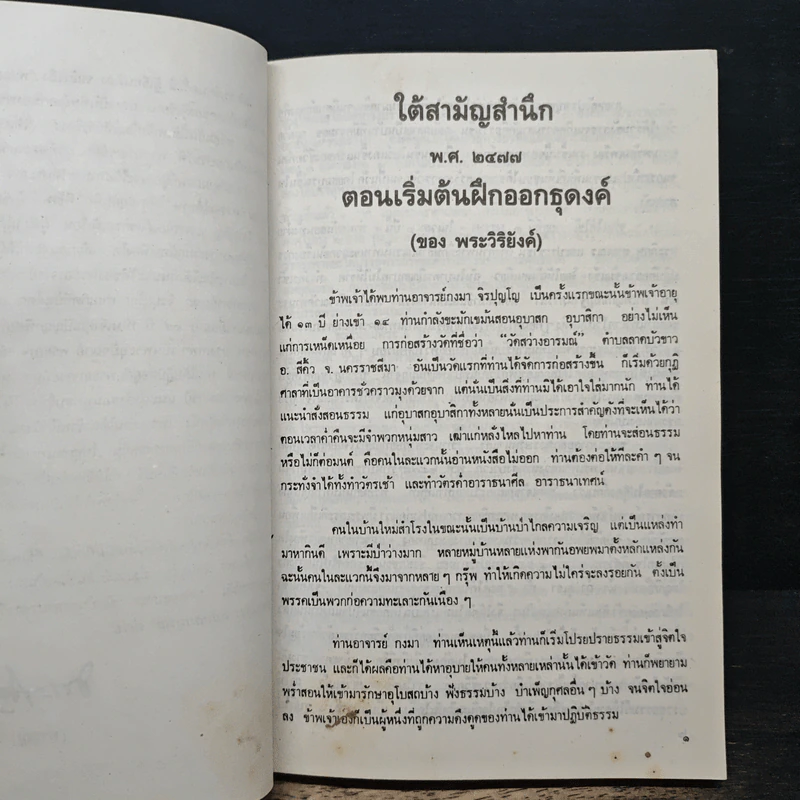 ใต้สามัญสำนึก
พ.ศ. ๒๔๗๗
ตอนเริ่มต้นฝึกออกธุดงค์
(ของ พระวิริยังค์)
ข้าพเจ้าได้พบท่านอาจารย์กงมา จิรปุญโญ เป็นครั้งแรกขณะนั้นข้าพเจ้าอายุ
ได้ ๑๓ ปี ย่างเข้า ๑๔ ท่านกำลังขะมักเขม้นสอนอุบาสก อุบาสิกา อย่างไม่เห็น
แก่การเหน็ดเหนื่อย การก่อสร้างวัดที่ชื่อว่า “วัดสว่างอารมณ์” ตำบลลาดบัวขาว
อ. สีคิ้ว จ. นครราชสีมา อันเป็นวัดแรกที่ท่านได้จัดการก่อสร้างขึ้น ก็เริ่มด้วยกุฏิ
ศาลาที่เป็นอาคารชั่วคราวมุงด้วยจาก แต่นั่นเป็นสิ่งที่ท่านมิได้เอาใจใส่มากนัก ท่านได้
แนะนำสั่งสอนธรรม แก่อุบาสกอุบาสิกาทั้งหลายนั่นเป็นประการสำคัญดังที่จะเห็นได้ว่า
ตอนเวลาค่ำคืนจะมีจำพวกหนุ่มสาว เฒ่าแก่หลั่งไหลไปหาท่าน โดยท่านจะสอนธรรม
หรือไม่ก็ต่อมนต์ คือคนในละแวกนั้นอ่านหนังสือไม่ออก ท่านต้องต่อให้ทีละคำ ๆ จน
กระทั่งจำได้ทั้งทำวัตรเช้า และทำวัตรค่ำอาราธนาศีล อาราธนาเทศน์
คนในบ้านใหม่สำโรงในขณะนั้นเป็นบ้านป่าไกลความเจริญ แต่เป็นแหล่งทำ
มาหากินดี เพราะมีป่าว่างมาก หลายหมู่บ้านหลายแห่งพากันอพยพมาตั้งหลักแหล่งกัน
ฉะนั้นคนในละแวกนี้จึงมาจากหลาย ๆ กรุ๊พ ทำให้เกิดความไม่ใคร่จะลงรอยกัน ตั้งเป็น
พรรคเป็นพวกก่อความทะเลาะกันเนือง ๆ
ท่านอาจารย์ กงมา ท่านเห็นเหตุนี้แล้วท่านก็เริ่มโปรยปรายธรรมเข้าสู่จิตใจ
ประชาชน และก็ได้ผลคือท่านได้หาอุบายให้คนทั้งหลายเหล่านั้นได้เข้าวัด ท่านก็พยายาม
พร่ำสอนให้เข้ามารักษาอุโบสถบ้าง ฟังธรรมบ้าง บำเพ็ญกุศลอื่น ๆ บ้าง จนจิตใจอ่อน
ลง ข้าพเจ้าเองก็เป็นผู้หนึ่งที่ถูกความดึงดูดของท่านได้เข้ามาปฏิบัติธรรม
๑